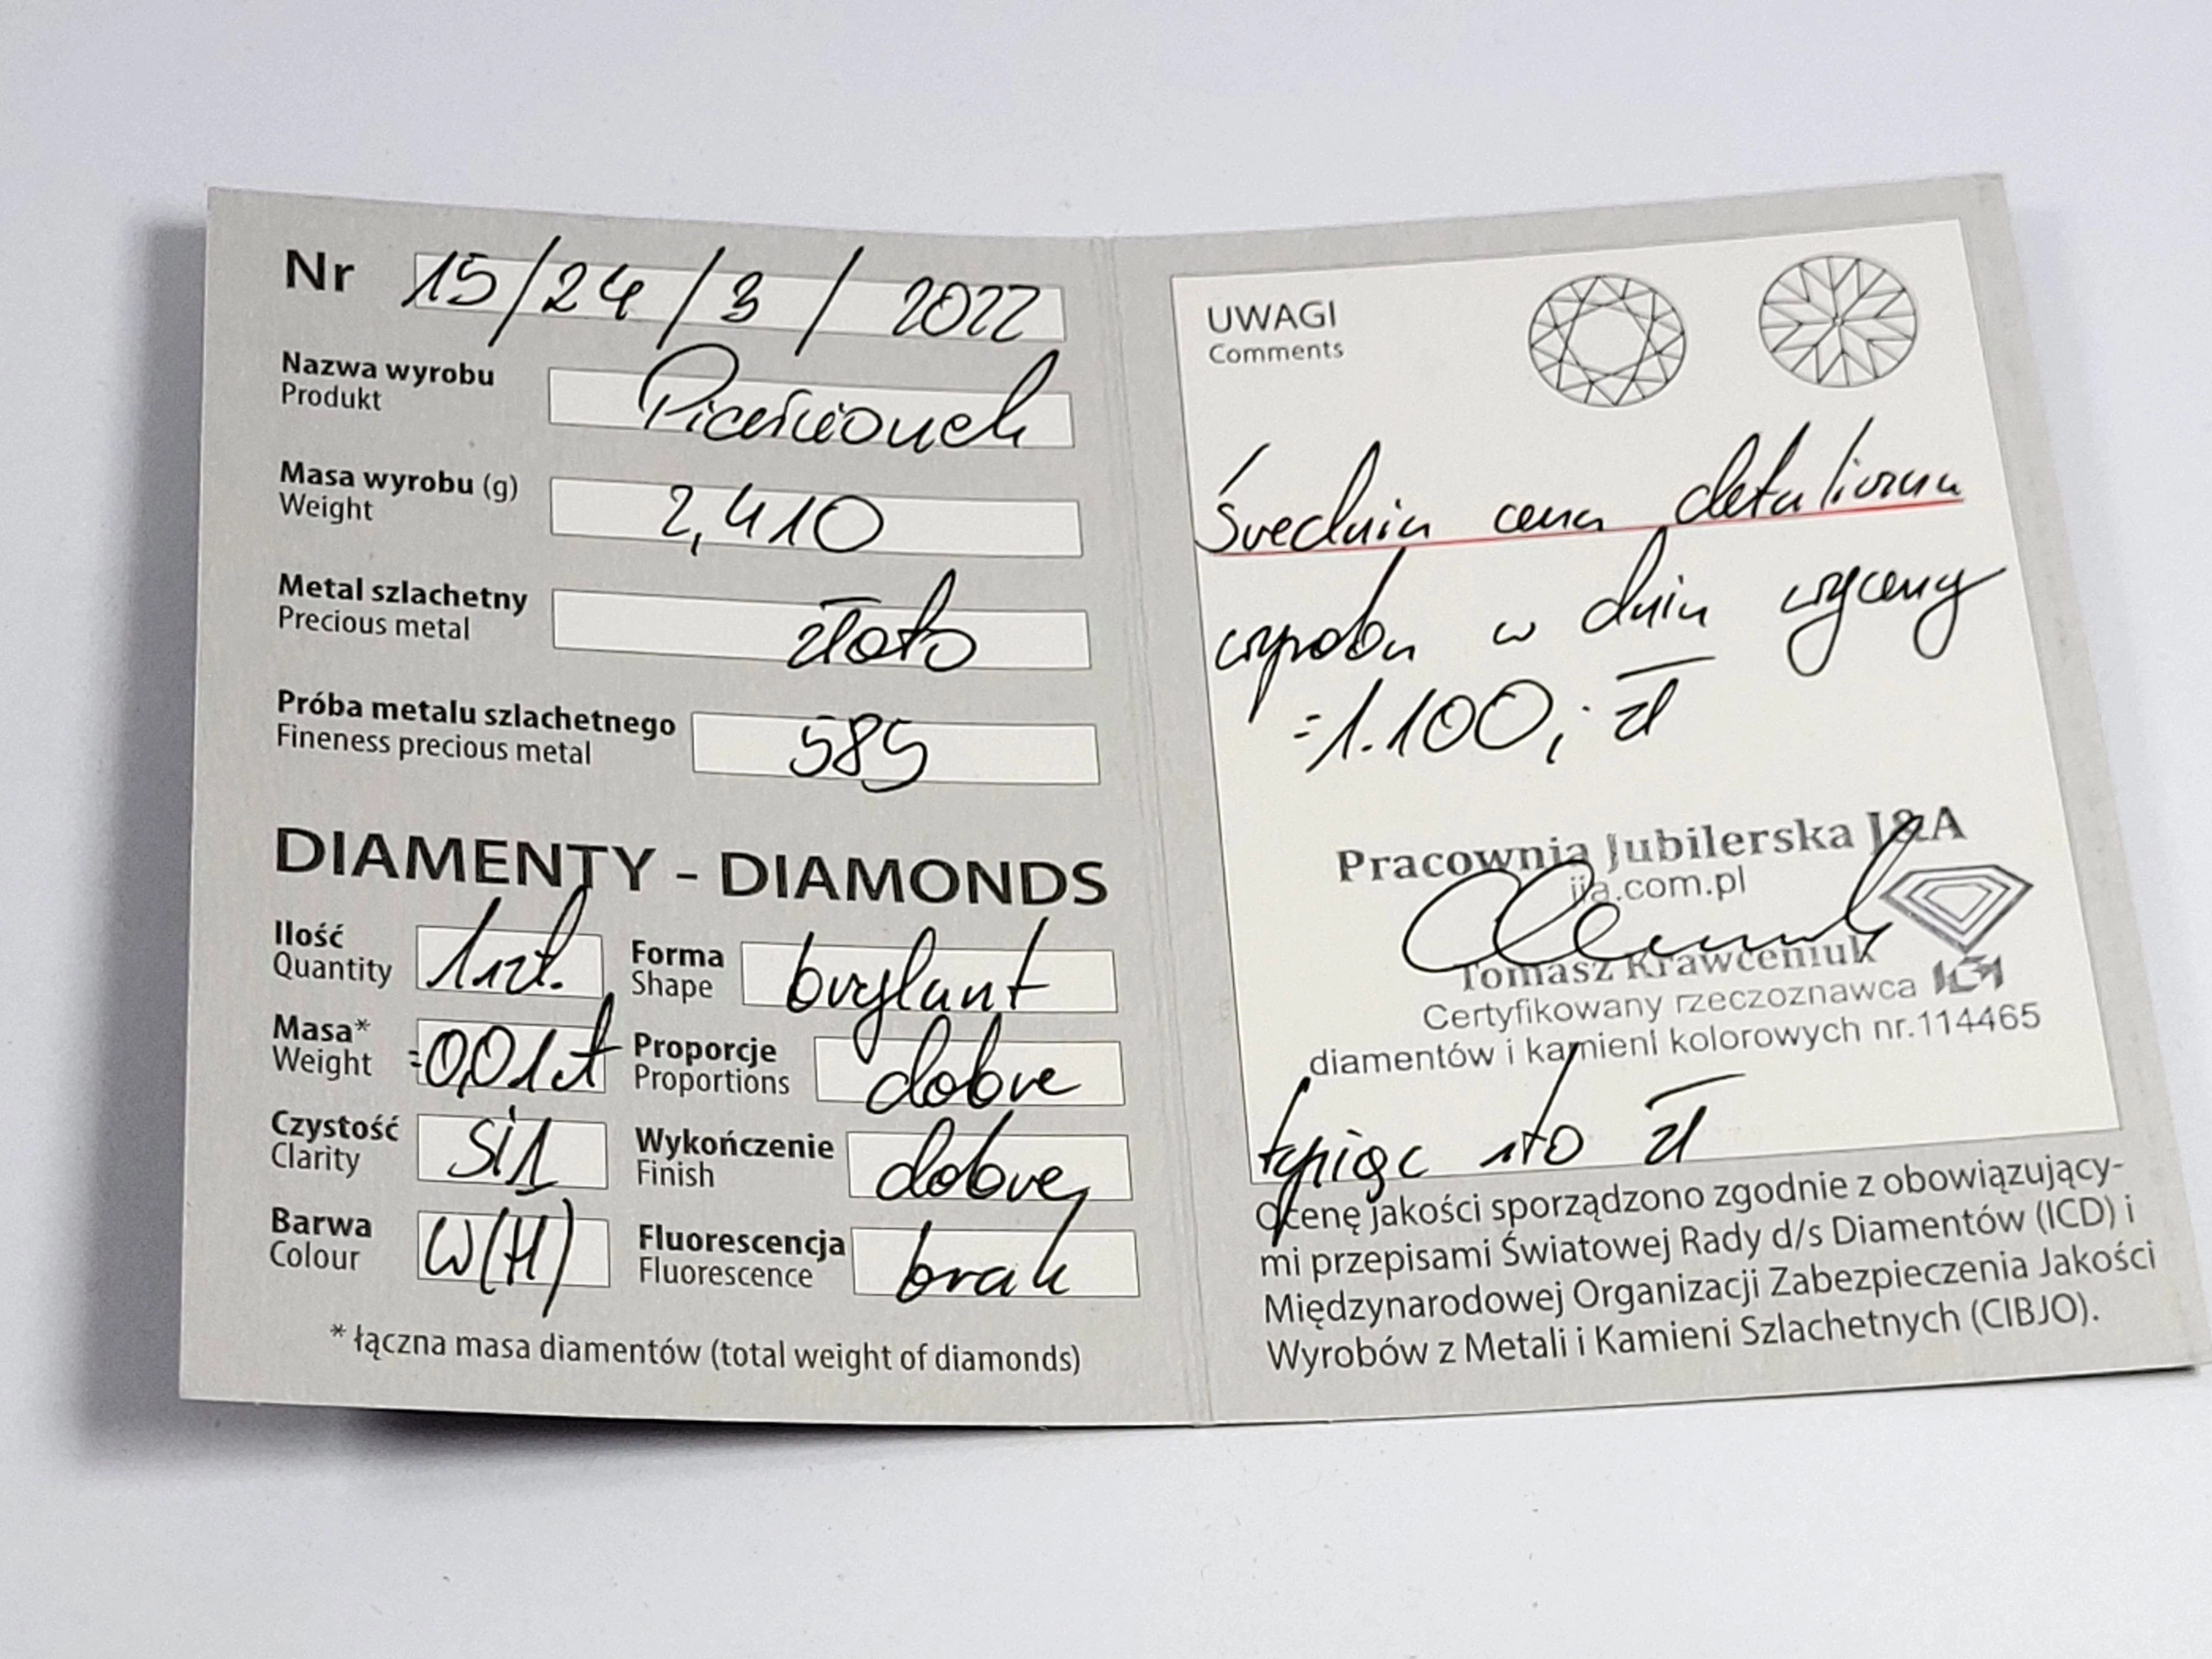 Nr 15/24/3/2022
Nazwa wyrobu Pierścionek
Produkt
Masa wyrobu (g) 2,410
Weight
Metal szlachetny złoto
Precious metal
Próba metalu szlachetnego 585
Fineness precious metal
DIAMENTY - DIAMONDS
Ilość 1szt. Forma brylant
Quantity Shape
Masa* =0,01ct Proporcje dobre
Weight Proportions
Czystość Si1 Wykończenie dobre
Clarity Finish
Barwa W(H) Fluorescencja brak
Colour Fluorescence
* łączna masa diamentów (total weight of diamonds)
UWAGI
Comments
Średnia cena detaliczna
wyrobu w dniu wyceny
=1.100,- zł
Pracownia Jubilerska J&A
jja.com.pl
Tomasz Krawceniuk
Certyfikowany rzeczoznawca
diamentów i kamieni kolorowych nr.114465
tysiąc sto zł
Ocenę jakości sporządzono zgodnie z obowiązujący-
mi przepisami Światowej Rady d/s Diamentów (ICD) i
Międzynarodowej Organizacji Zabezpieczenia Jakości
Wyrobów z Metali i Kamieni Szlachetnych (CIBJO).